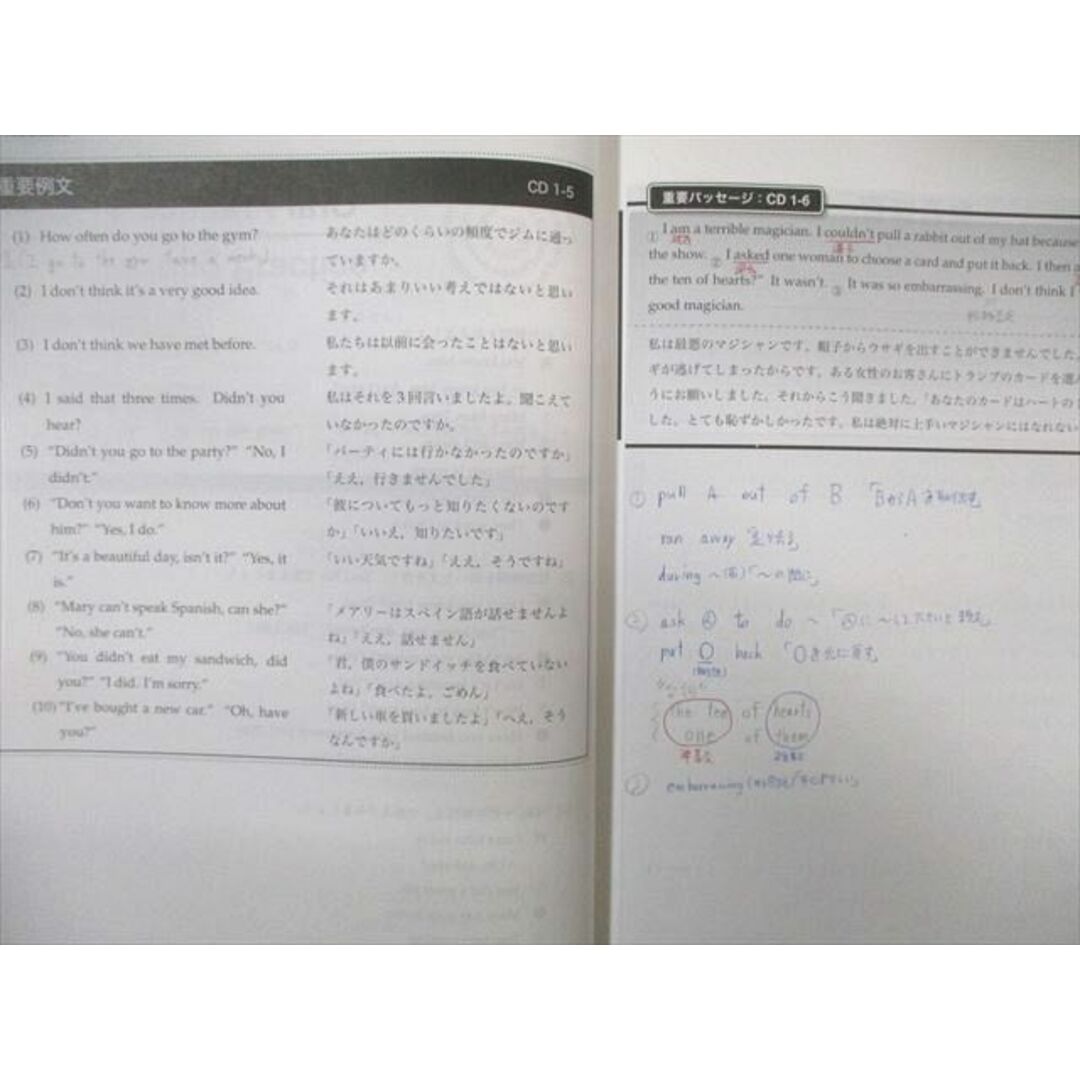 重要例文
CD 1-5
(1) How often do you go to the gym?
あなたはどのくらいの頻度でジムに通っ
ていますか。
I go to the gym a week
(2) I don't think it's a very good idea.
それはあまりいい考えではないと思い
ます。
(3) I don't think we have met before.
私たちは以前に会ったことはないと思い
ます。
(4) I said that three times. Didn't you
hear?
私はそれを3回言いましたよ。聞こえて
いなかったのですか。
(5) "Didn't you go to the party?" "No, I
didn't."
「パーティには行かなかったのですか」
「ええ，行きませんでした」
(6) "Don't you want to know more about
him?" "Yes, I do."
「彼についてもっと知りたくないのです
か」「いいえ，知りたいです」
(7) "It's a beautiful day, isn't it?" "Yes, it
is."
「いい天気ですね」「ええ，そうですね」
(8) "Mary can't speak Spanish, can she?"
"No, she can't."
「メアリーはスペイン語が話せませんよ
ね」「ええ，話せません」
(9) "You didn't eat my sandwich, did
you?" "I did. I'm sorry."
「君，僕のサンドイッチを食べていない
よね」「食べたよ，ごめん」
(10) "I've bought a new car." "Oh, have
you?"
「新しい車を買いましたよ」「へえ，そう
なんですか」
重要パッセージ：CD 1-6
① I am a terrible magician. I couldn't pull a rabbit out of my hat because
the show. ② I asked one woman to choose a card and put it back. I then
the ten of hearts?" It wasn't. ③ It was so embarrassing. I don't think I
good magician.
私は最悪のマジシャンです。帽子からウサギを出すことができませんでした。
ギが逃げてしまったからです。ある女性のお客さんにトランプのカードを選
うにお願いしました。それからこう聞きました。「あなたのカードはハートの
した。とても恥ずかしかったです。私は絶対に上手いマジシャンにはなれない
① pull A out of B 「BからAを
ran away
during ～ 「～の間に」
② ask to do ～
put O back 「Oを元に戻す
the ten of hearts
one of them
単数
複数
embarrassing